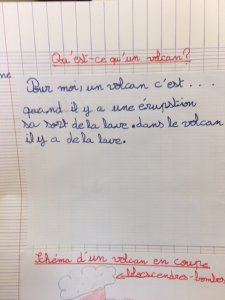 Qu'est-ce qu'un volcan?
Pour moi, un volcan c'est...
quand il y a une érupstion
sa sort de la lave. dans le volcan
il y a de la lave.
Schéma d'un volcan en coupe
blocs cendres-bombes